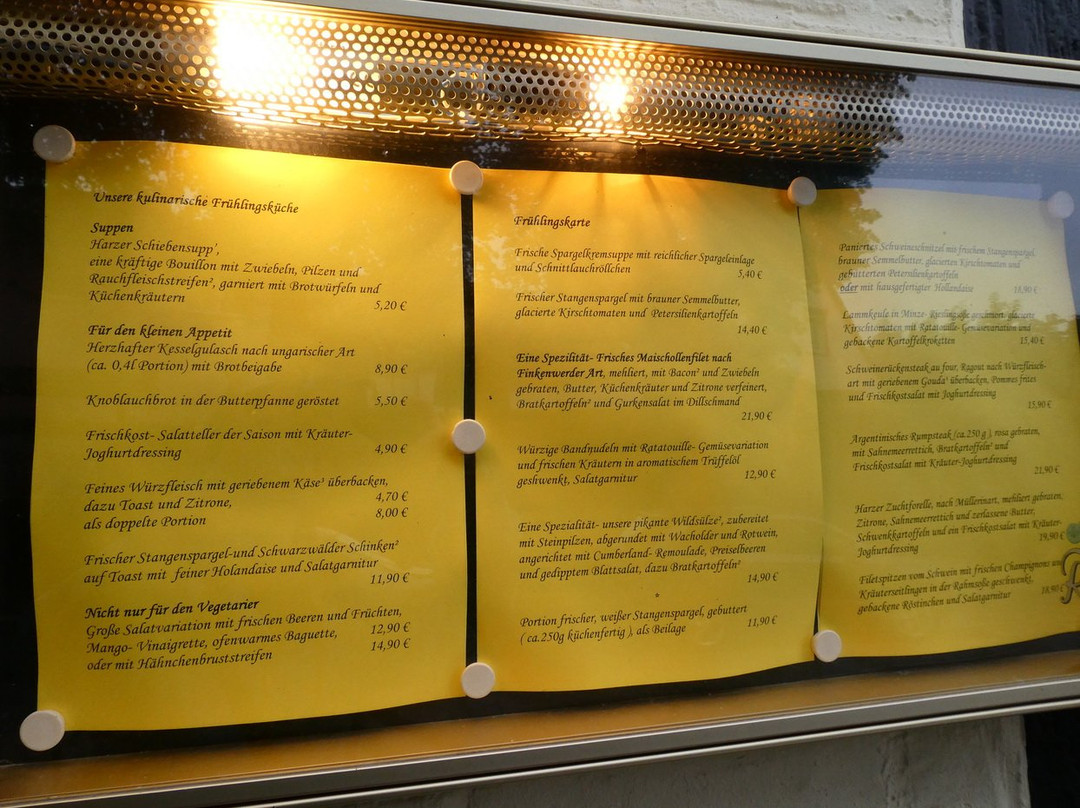 Unsere kulinarische Frühlingsküche
Suppen
Harzer Schiebensupp',
eine kräftige Bouillon mit Zwiebeln, Pilzen und
Rauchfleischstreifen², garniert mit Brotwürfeln und
Küchenkräutern 5,20 €
Für den kleinen Appetit
Herzhafter Kesselgulasch nach ungarischer Art
(ca. 0,4l Portion) mit Brotbeigabe 8,90 €
Knoblauchbrot in der Butterpfanne geröstet 5,50 €
Frischkost- Salatteller der Saison mit Kräuter-
Joghurtdressing 4,90 €
Feines Würzfleisch mit geriebenem Käse³ überbacken,
dazu Toast und Zitrone, 4,70 €
als doppelte Portion 8,00 €
Frischer Stangenspargel-und Schwarzwälder Schinken²
auf Toast mit feiner Holandaise und Salatgarnitur
11,90 €
Nicht nur für den Vegetarier
Große Salatvariation mit frischen Beeren und Früchten,
Mango- Vinaigrette, ofenwarmes Baguette, 12,90 €
oder mit Hähnchenbruststreifen 14,90 €
Frühlingskarte
Frische Spargelkremsuppe mit reichlicher Spargeleinlage
und Schnittlauchröllchen 5,40 €
Frischer Stangenspargel mit brauner Semmelbutter,
glacierte Kirschtomaten und Petersilienkartoffeln
14,40 €
Eine Spezilität- Frisches Maischollenfilet nach
Finkenwerder Art, mehliert, mit Bacon² und Zwiebeln
gebraten, Butter, Küchenkräuter und Zitrone verfeinert,
Bratkartoffeln² und Gurkensalat im Dillschmand
21,90 €
Würzige Bandnudeln mit Ratatouille- Gemüsevariation
und frischen Kräutern in aromatischem Trüffelöl
geshwenkt, Salatgarnitur 12,90 €
Eine Spezialität- unsere pikante Wildsülze², zubereitet
mit Steinpilzen, abgerundet mit Wacholder und Rotwein,
angerichtet mit Cumberland- Remoulade, Preiselbeeren
und gedipptem Blattsalat, dazu Bratkartoffeln²
14,90 €
Portion frischer, weißer Stangenspargel, gebuttert
( ca.250g küchenfertig ), als Beilage 11,90 €
Paniertes Schweineschnitzel mit frischem Stangenspargel,
brauner Semmelbutter, glacierten Kirschtomaten und
gebutterten Petersilienkartoffeln
oder mit hausgefertigter Hollandaise 18,90 €
Lammkeule in Minze- Rieslingsoße geschmort, glacierte
Kirschtomaten mit Ratatouille- Gemüsevariation und
gebackene Kartoffelkroketten 15,40 €
Schweinerückensteak au four, Ragout nach Würzfleisch-
art mit geriebenem Gouda³ überbacken, Pommes frites
und Frischkostsalat mit Joghurtdressing
15,90 €
Argentinisches Rumpsteak (ca.250 g ), rosa gebraten,
mit Sahnemeerrettich, Bratkartoffeln² und
Frischkostsalat mit Kräuter-Joghurtdressing
21,90 €
Harzer Zuchtforelle, nach Müllerinart, mehliert gebraten,
Zitrone, Sahnemeerrettich und zerlassene Butter,
Schwenkkartoffeln und ein Frischkostsalat mit Kräuter-
Joghurtdressing 19,90 €
Filetspitzen vom Schwein mit frischen Champignons und
Kräuterseitlingen in der Rahmsoße geschwenkt,
gebackene Röstinchen und Salatgarnitur 18,90 €